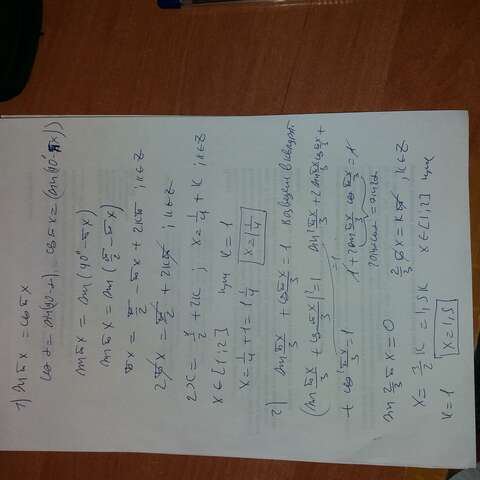 1) sin πx = cos πx
cos α = sin(90-α), cos πx = (sin(90°-πx))
sin πx = sin (90°-πx)
sin πx = sin (π/2 - πx)
πx = π/2 - πx + 2πk ; k∈Z
2πx = π/2 + 2πk ; k∈Z
2x = 1/2 + 2k ; x = 1/4 + k ; k∈Z
x∈[1;2] при k = 1
x = 1/4 + 1 = 1 1/4 x = 1 1/4
2) sin πx/3 + cos πx/3 = 1 возведем в квадрат
(sin πx/3 + cos πx/3)² = 1 sin² πx/3 + 2sin πx/3 cos πx/3 +
+ cos² πx/3 = 1 1 + 2sin πx/3 cos πx/3 = 1
2sinα cosα = sin2α
sin 2/3 πx = 0 2/3 πx = πk ; k∈Z
x = 3/2 k = 1,5k x∈[1;2] при
k = 1 x = 1,5